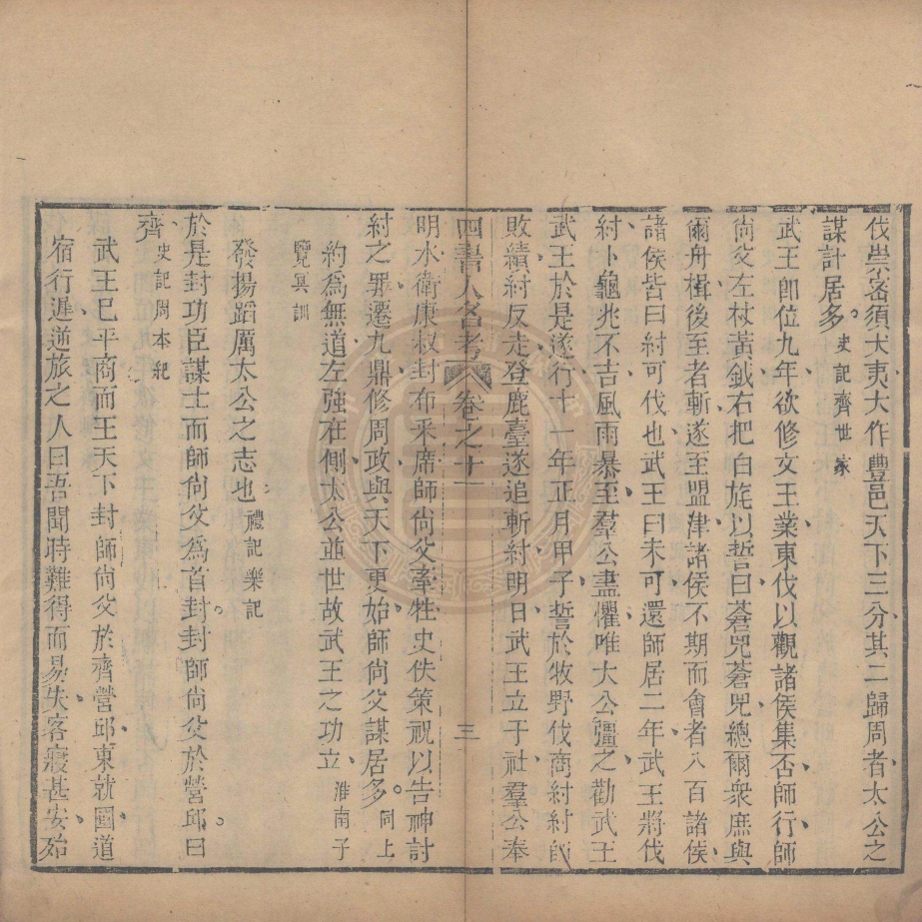 伐崇密須犬夷大作豐邑天下三分其二歸周者太公之
謀計居多史記齊世家
武王卽位九年欲修文王業東伐以觀諸侯集否師行師
尙父左杖黃鉞右把白旄以誓曰蒼兕蒼兕總爾衆庶與
爾舟楫後至者斬遂至盟津諸侯不期而會者八百諸侯
諸侯皆曰紂可伐也武王曰未可還師居二年武王將伐
紂卜龜兆不吉風雨暴至羣公盡懼唯大公彊之勸武王
武王於是遂行十一年正月甲子誓於牧野伐商紂紂師
敗績紂反走登鹿臺遂追斬紂明日武王立于社羣公奉
四書人名考 卷之十一 三
明水衛康叔封布采席師尙父牽牲史佚策祝以告神討
紂之罪遷九鼎修周政與天下更始師尙父謀居多。同上
約爲無道左強在側太公並世故武王之功立淮南子
覽冥訓
發揚蹈厲太公之志也禮記樂記
於是封功臣謀士而師尙父爲首封封師尙父於營邱。曰
齊史記周本紀
武王已平商而王天下封師尙父於齊營邱東就國道
宿行遲逆旅之人曰吾聞時難得而易失客寢甚安殆